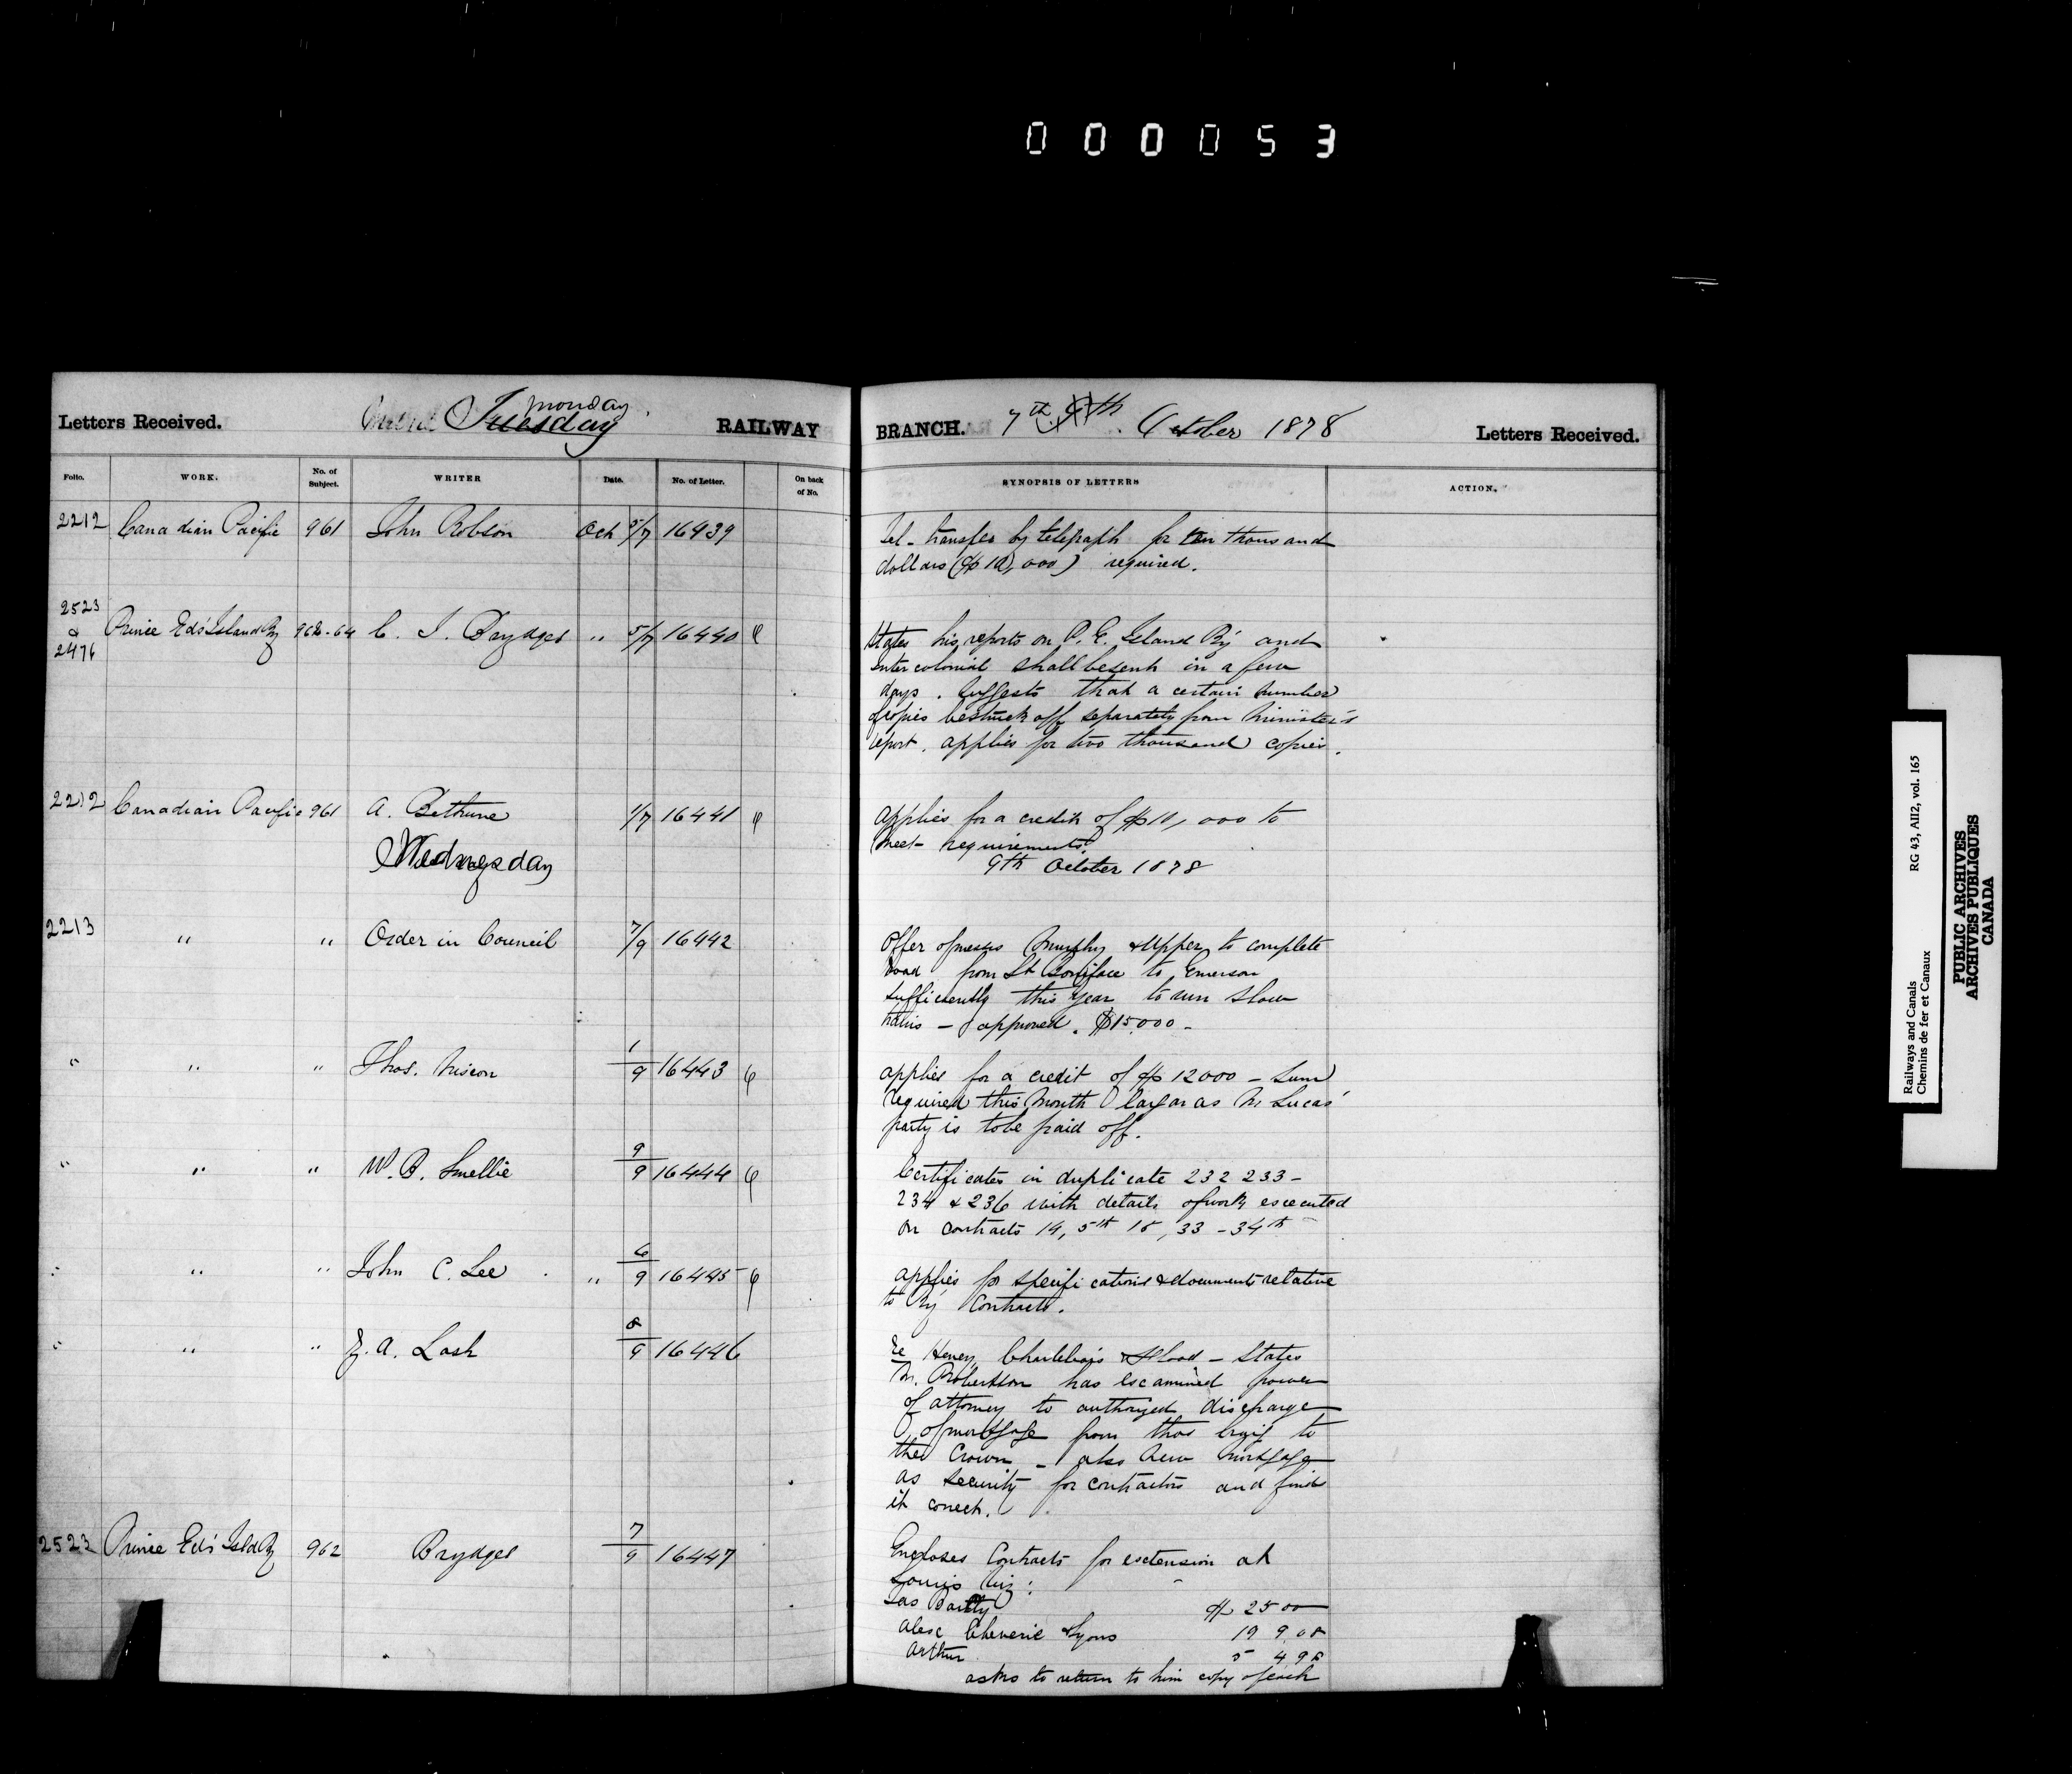 000053
Letters Received. Tuesday Monday RAILWAY BRANCH. 7th October 1878 Letters Received.
Folio. WORK. No. of Subject. WRITER Date. No. of Letter. On back of No. SYNOPSIS OF LETTERS ACTION.
2212 Canadian Pacific 961 John Robson Oct 5/7 16439
Tel - transfer by telegraph for ten thousand
dollars ($10,000) required.
2523 & 2476 Prince Ed's Island Ry 962-64 C. J. Brydges " 5/7 16440
States his reports on P. E. Island Ry and
Intercolonial shall be sent in a few
days. Suggests that a certain number
of copies be struck off separately from Minister's
report. applies for two thousand copies.
2212 Canadian Pacific 961 A. Bethune 1/7 16441
Applies for a credit of $10,000 to
meet requirements.
Wednesday 9th October 1878
2213 " " Order in Council 7/9 16442
Offer of Messrs Murphy & Upper to complete
road from St Boniface to Emerson
sufficiently this year to run slow
trains - approved. $15,000 -
" " " Thos. Nixon 1/9 16443
applies for a credit of $12000 - Sum
required this Month larger as Mr Lucas'
party is to be paid off.
" " " W. B. Smellie 9/9 16444
Certificates in duplicate 232 233 -
234 & 236 with details of work executed
on contracts 14, 5th 15, 33 - 34th
" " " John C. Lee " 6/9 16445
applies for specifications & documents relative
to Ry Contracts.
" " " Z. A. Lash 8/9 16446
Re Heney, Charlebois & Flood - States
Mr. Robertson has examined power
of attorney to authorized discharge
of mortgage from Thos to
the Crown - also new mortgage
as security for contractors and finds
it correct.
2523 Prince Ed's Isld Ry 962 Brydges 7/9 16447
Encloses Contracts for extension at
Souris viz:
$ 2500
Alex Cheverie & Lyons 19 9.08
Arthur 5 498
asks to return to him copy of each
Railways and Canals RG 43, AII2, vol. 165
Chemins de fer et Canaux
PUBLIC ARCHIVES
ARCHIVES PUBLIQUES
CANADA